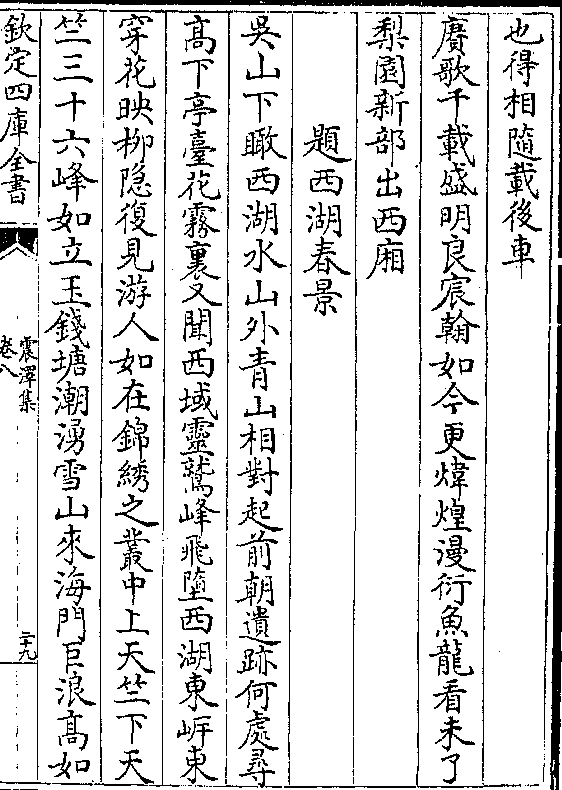 也得相隨載後車
賡歌千載盛明良宸翰如今更煒煌漫衍魚龍看未了
梨園新部出西廂
題西湖春景
吳山下瞰西湖水山外青山相對起前朝遺跡何處尋
髙下亭臺花霧裏又聞西域靈鷲峰飛墮西湖東㟁東
穿花映栁隐復見游人如在錦綉之叢中上天竺下天
竺三十六峰如立玉錢塘潮湧雪山來海門巨浪髙如
欽定四庫全書
震澤集
卷八
二十九